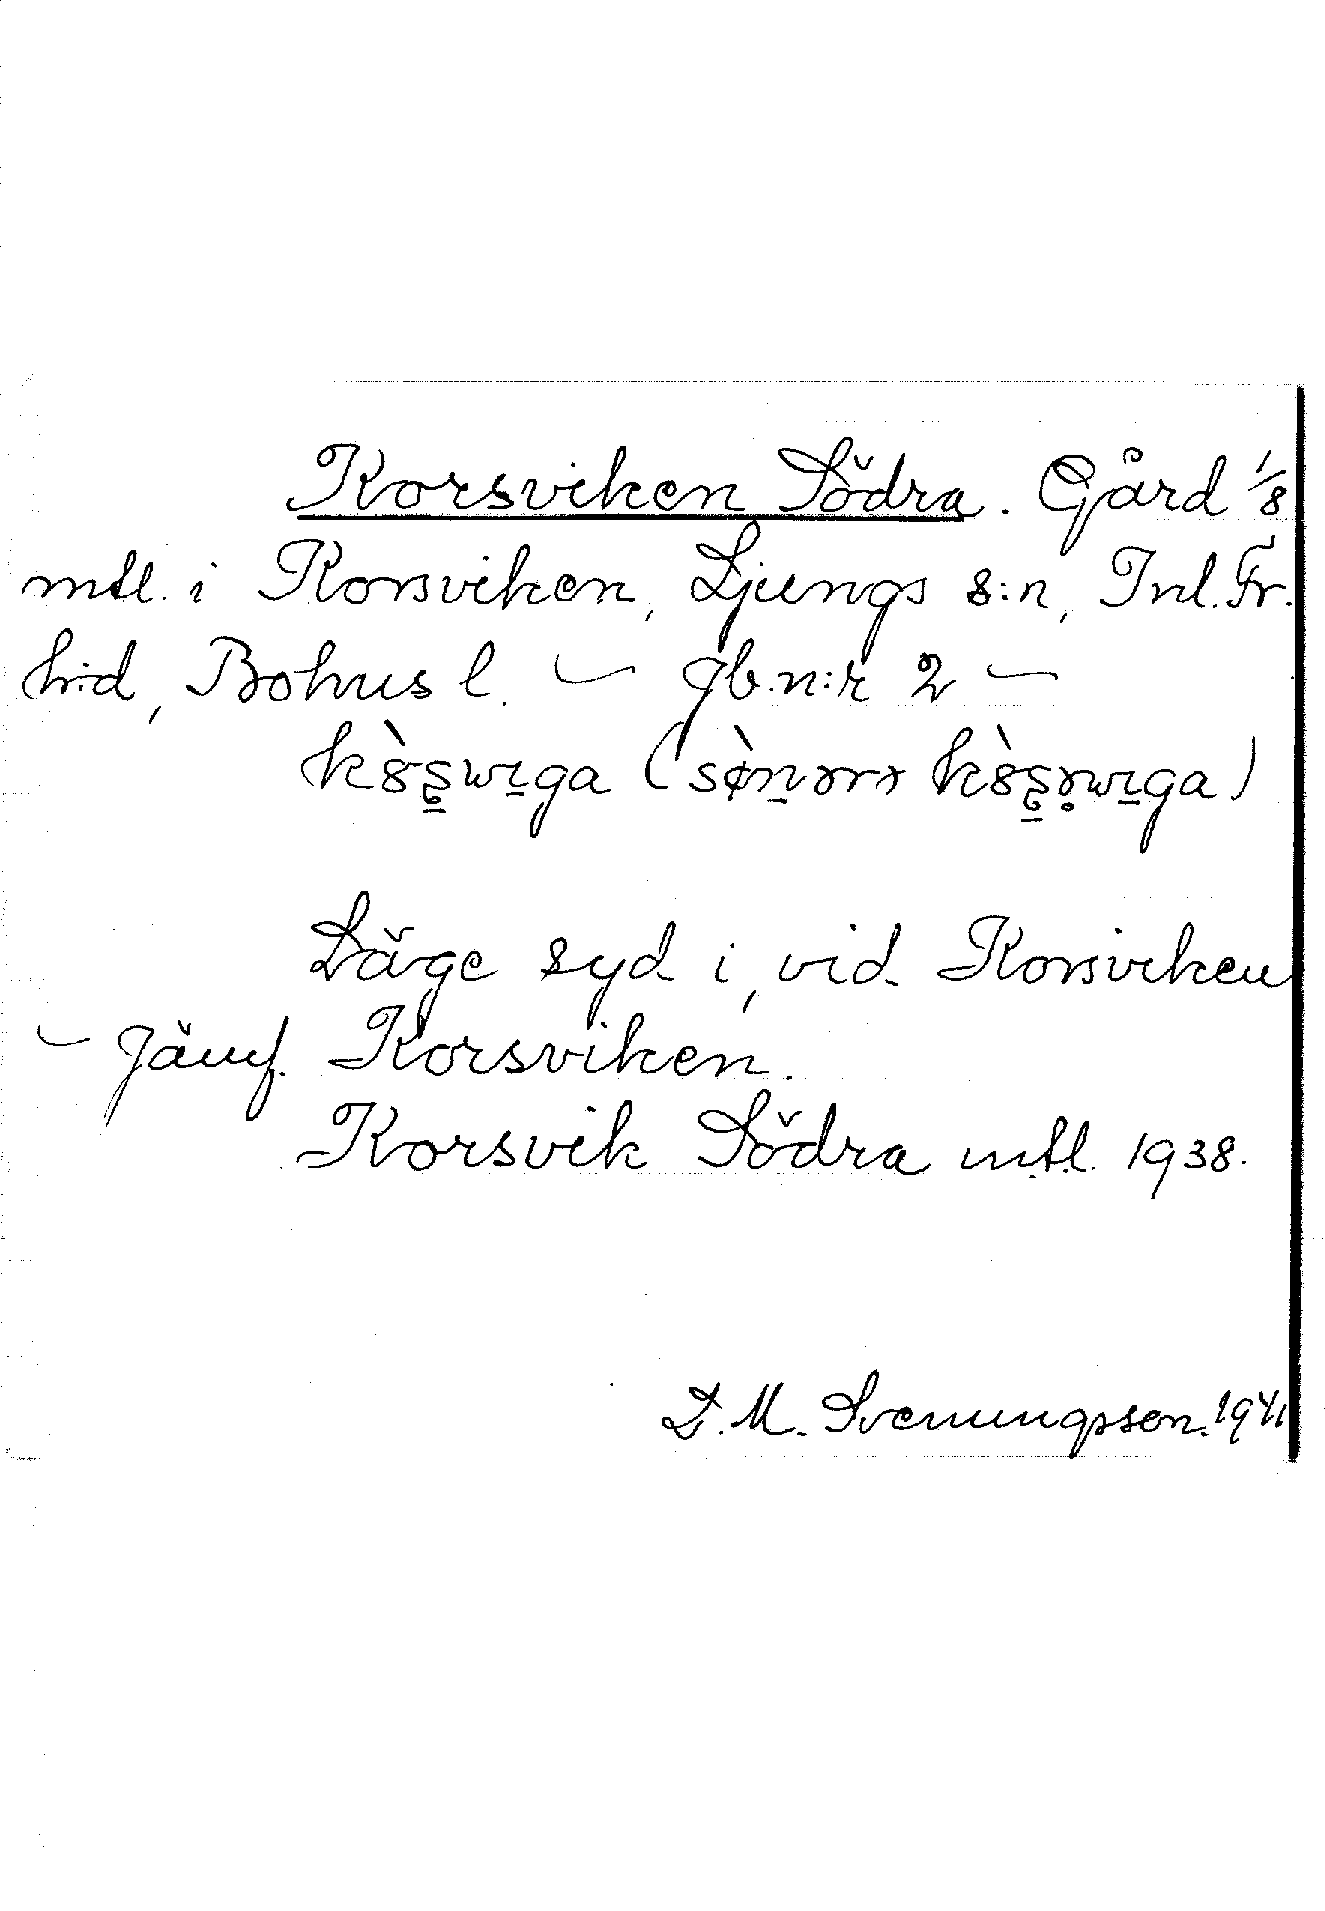 Korsviken Södra. Gård 1/8
mtl. i Korsviken, Ljungs s:n, Inl. Fr.
h:d, Bohus l. – jb.n:r 2 –
Läge syd i, vid Korsviken
– Jämf. Korsviken.
Korsvik Södra mtl. 1938.
D. M. Svenungsson. 1941